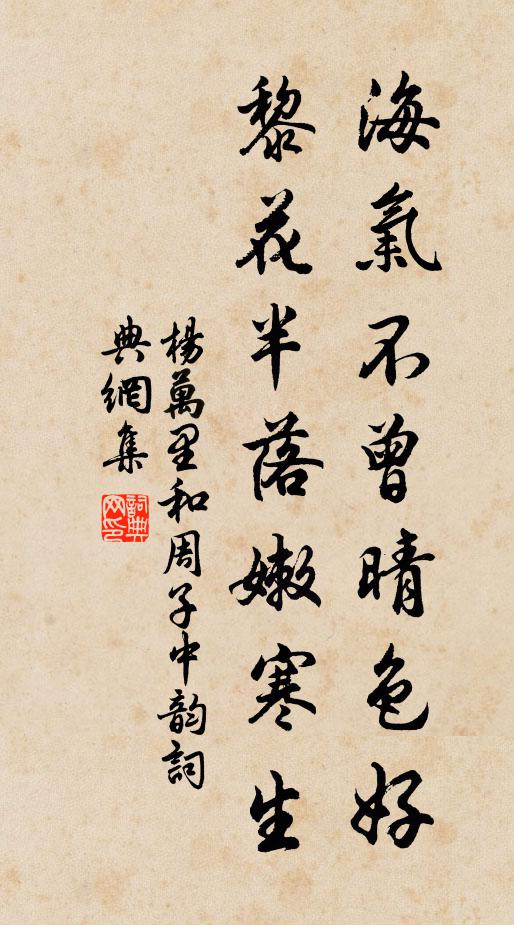 海氣不曾晴色好
黎花半落嫩寒生
楊萬里和周子中韵詞
典網集
詞典網印